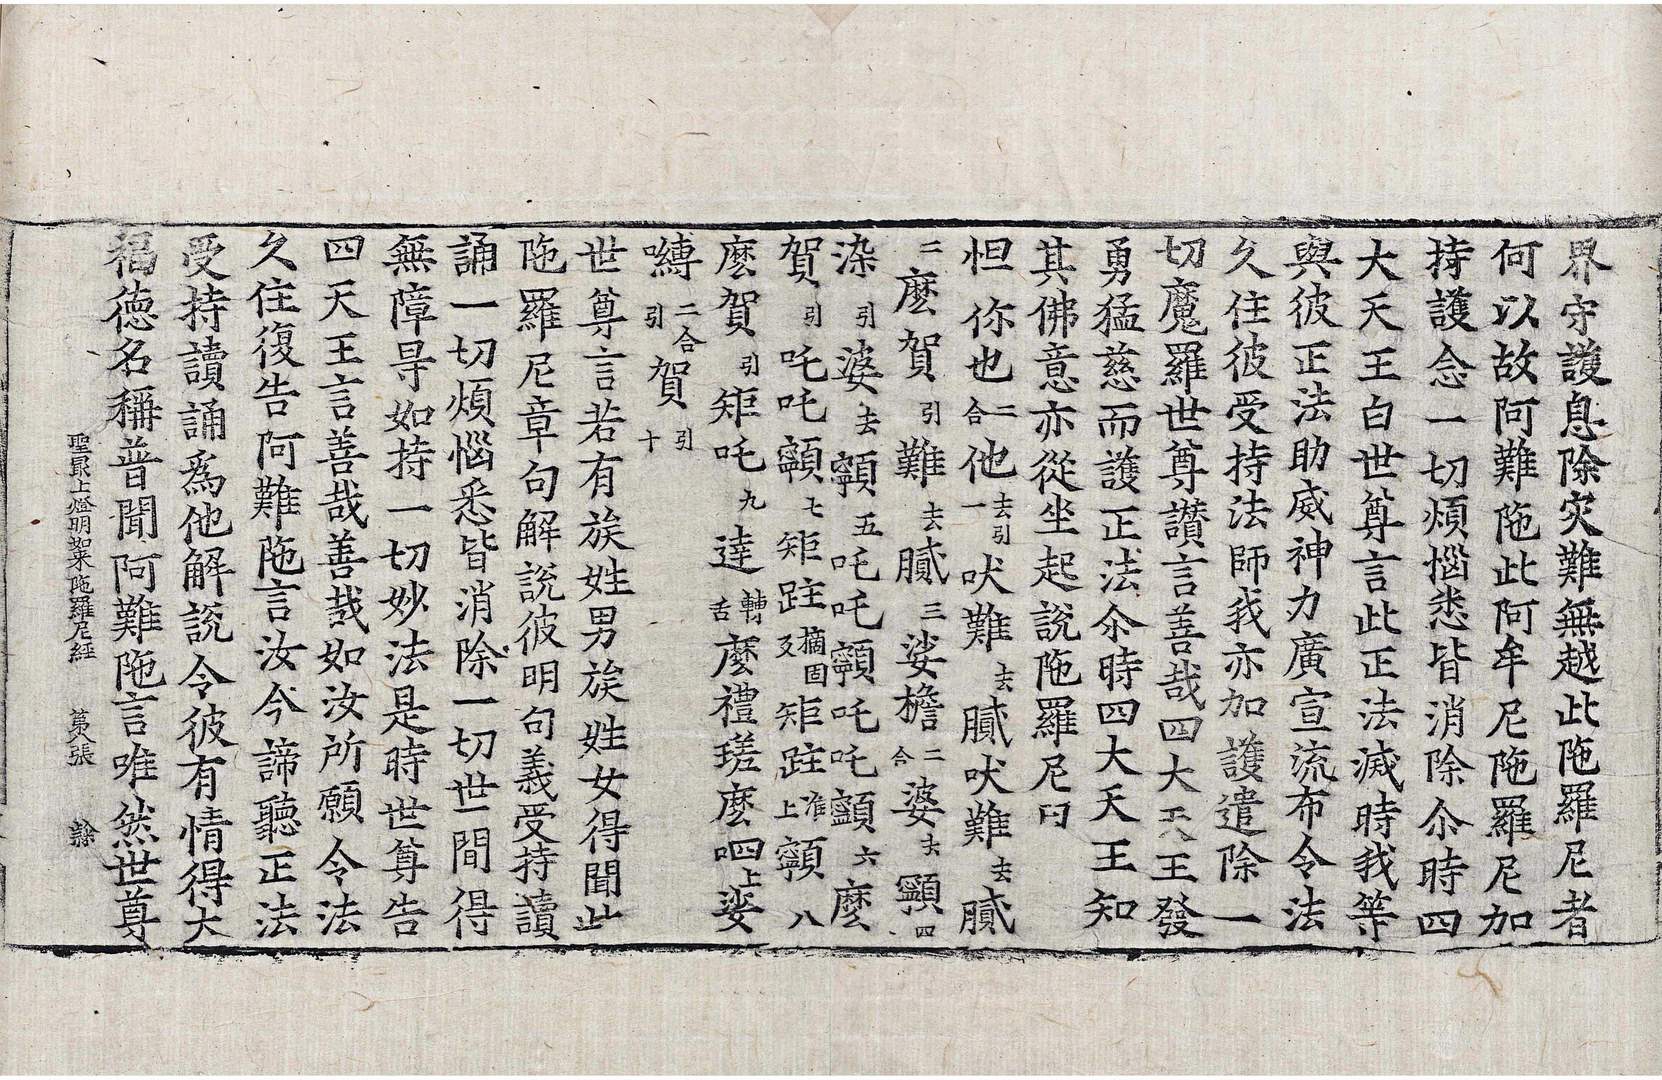 界守護息除灾難無越此陁羅尼者
何以故阿難陁此阿牟尼陁羅尼加
持護念一切煩惱悉皆消除尒時四
大天王白世尊言此正法滅時我等
與彼正法助威神力廣宣流布令法
久住彼受持法師我亦加護遣除一
切魔羅世尊讃言善哉四大天王發
勇猛慈而護正法尒時四大天王知
其佛意亦從坐起說陁羅尼曰
怛你也二合他去引一吠難去膩吠難去膩
二麽賀引難去膩三娑檐二合婆去𩕳四
染引婆去𩕳五吒吒𩕳吒吒𩕳六麽
賀引吒吒𩕳七矩跓摘固反矩跓准上𩕳八
麽賀引矩吒九達轉舌麽禮瑳麽呬上娑
嚩二合引賀引十
世尊言若有族姓男族姓女得聞此
陁羅尼章句解說彼明句義受持讀
誦一切煩惱悉皆消除一切世間得
無障导如持一切妙法是時世尊告
四天王言善哉善哉如汝所願令法
久住復告阿難陁言汝今諦聽正法
受持讀誦爲他解說令彼有情得大
福德名稱普聞阿難陁言唯然世尊
聖最上燈明如來陁羅尼經　第　張